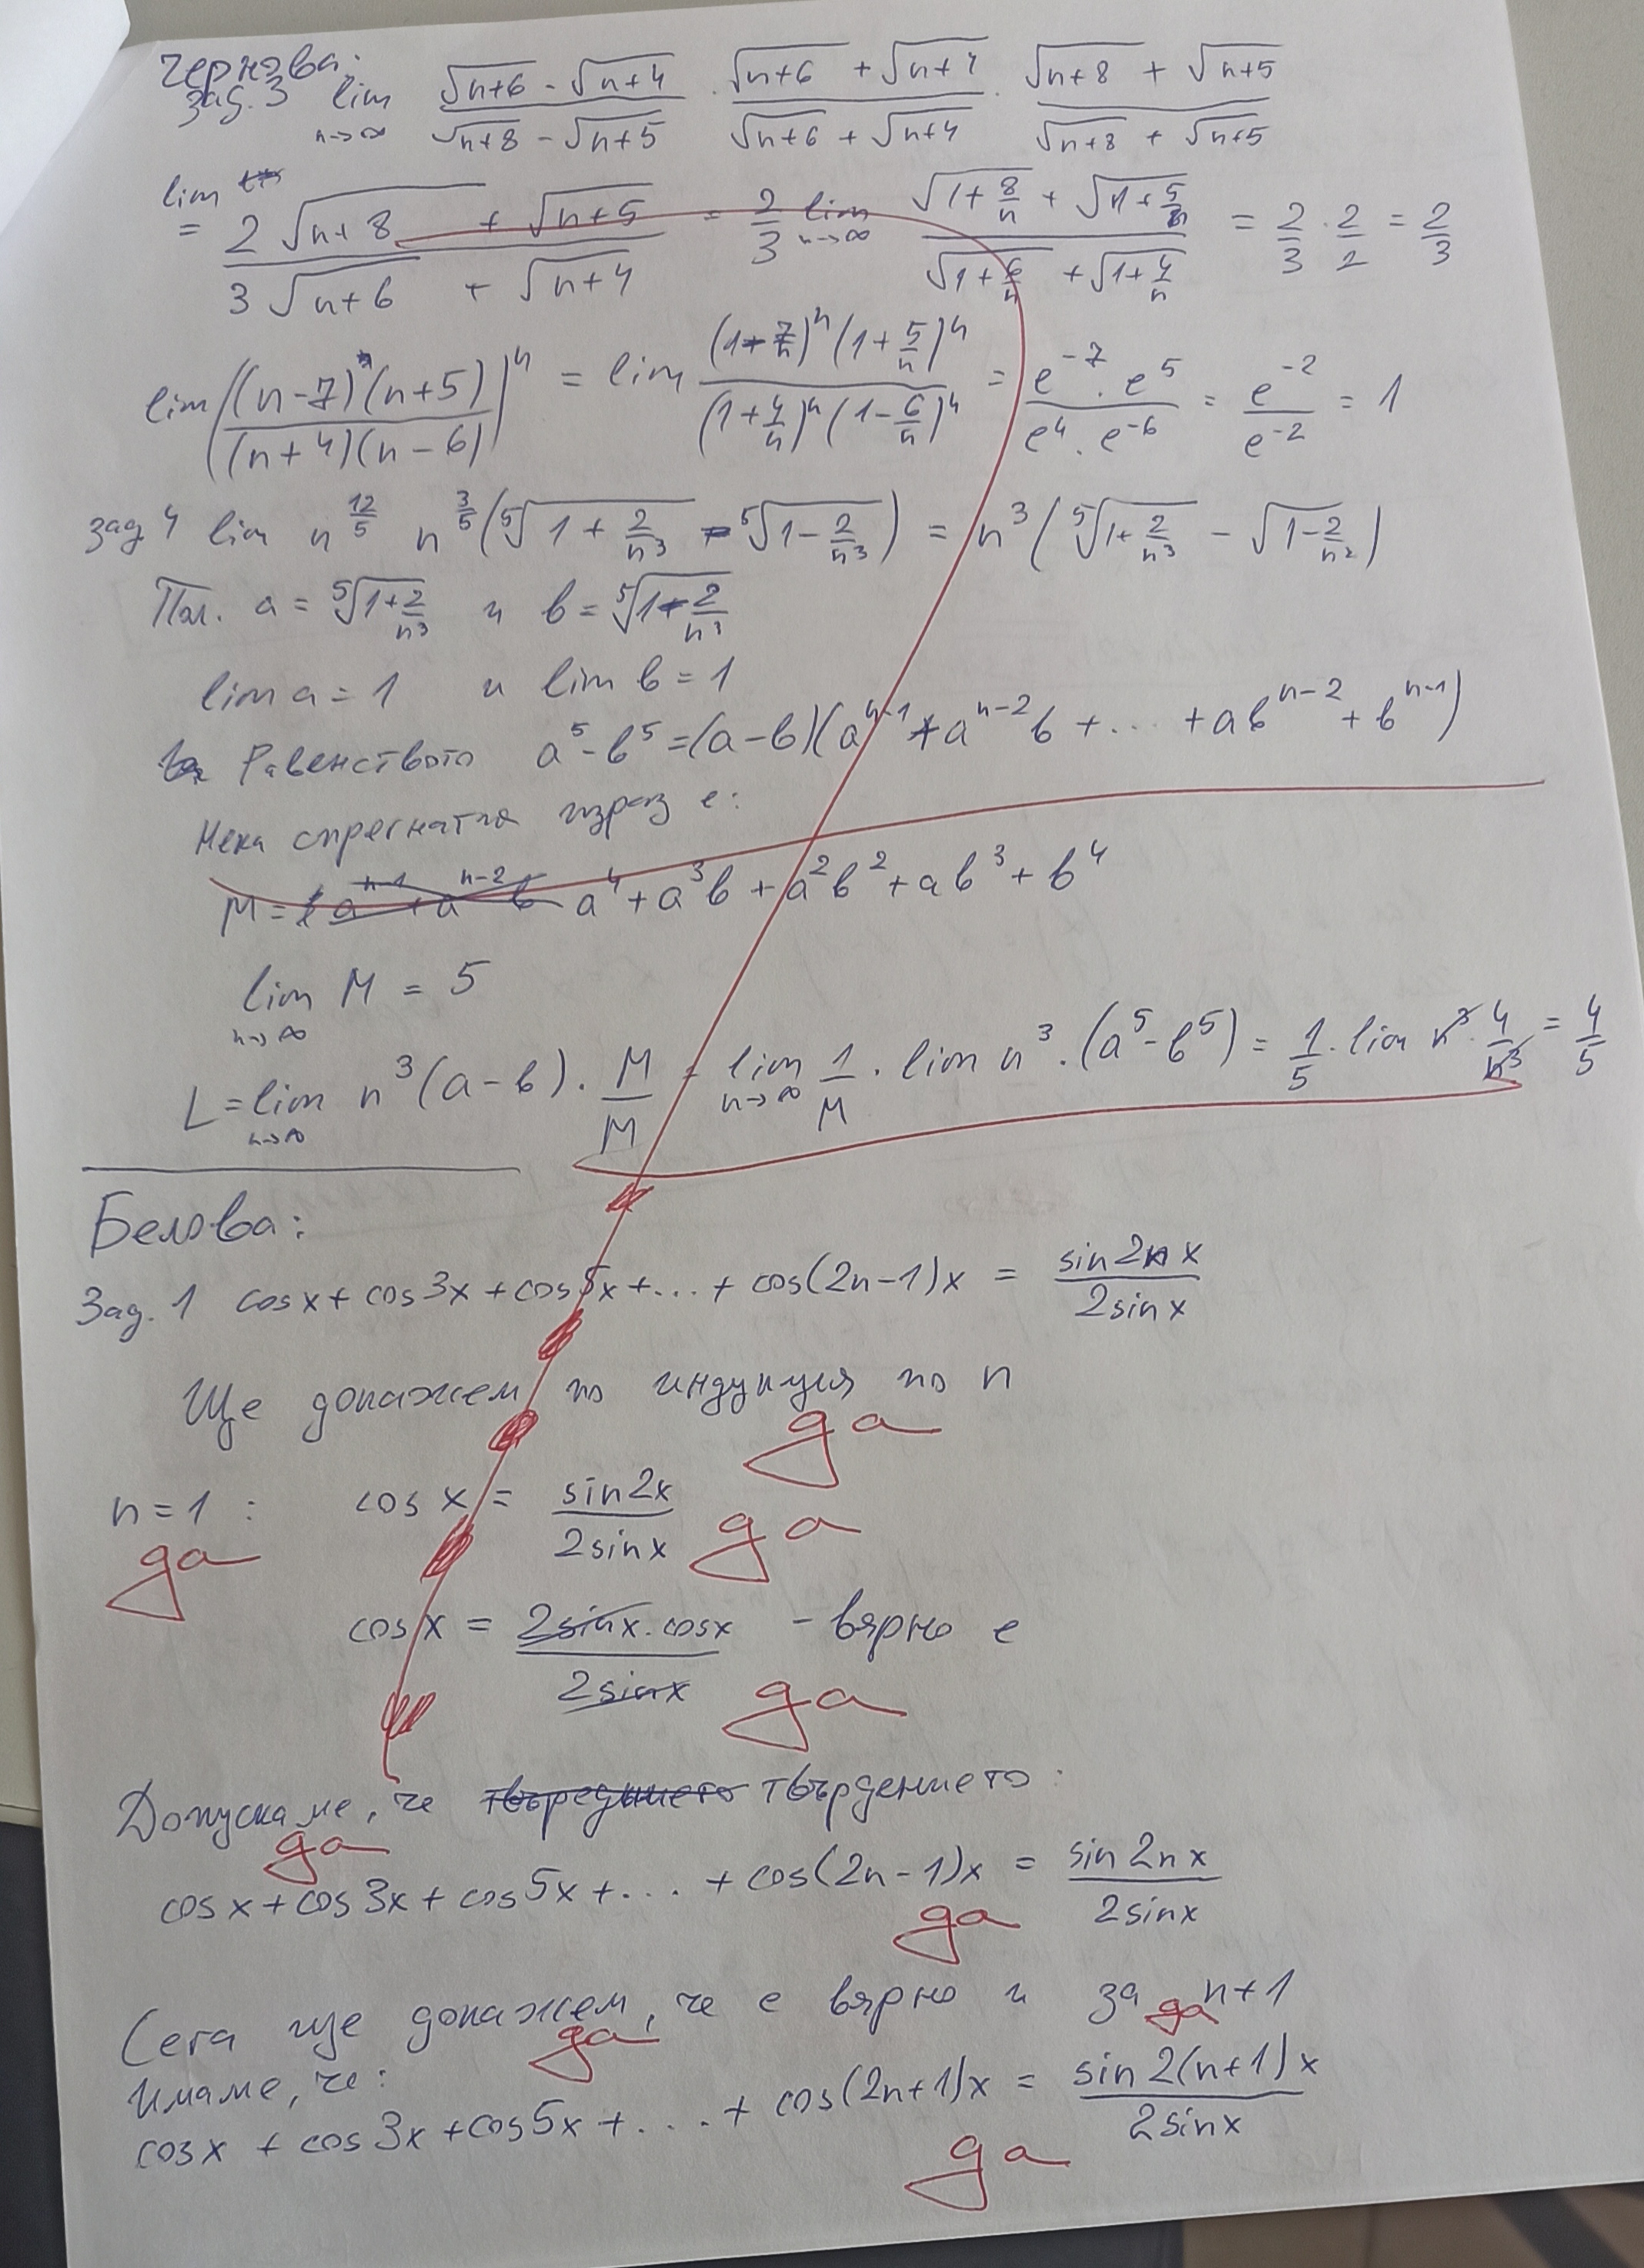 Чернова:
зад. 3 lim n→∞ (√(n+6) - √(n+4))/(√(n+8) - √(n+5)) . (√(n+6) + √(n+4))/(√(n+6) + √(n+4)) . (√(n+8) + √(n+5))/(√(n+8) + √(n+5))
lim
= (2√(n+8) + √(n+5))/(3√(n+6) + √(n+4)) = 2/3 lim n→∞ (√(1+8/n) + √(1+5/n))/(√(1+6/n) + √(1+4/n)) = 2/3 . 2/2 = 2/3
lim ((n-7)(n+5)/((n+4)(n-6)))^n = lim ((1-7/n)^n (1+5/n)^n)/((1+4/n)^n (1-6/n)^n) = (e^-7 . e^5)/(e^4 . e^-6) = e^-2/e^-2 = 1
зад 4 lim n^(12/5) n^(3/5) (⁵√(1+2/n³) - ⁵√(1-2/n³)) = n³(⁵√(1+2/n³) - √(1-2/n²))
Пол. a = ⁵√(1+2/n³) и b = ⁵√(1-2/n³)
lim a = 1 и lim b = 1
Равенството a⁵-b⁵ = (a-b)(a^(n-1) + a^(n-2)b + ... + ab^(n-2) + b^(n-1))
Нека спрегнатия израз е:
M = a⁴ + a³b + a²b² + ab³ + b⁴
lim n→∞ M = 5
L = lim n→∞ n³(a-b) . M/M = lim n→∞ 1/M . lim n³.(a⁵-b⁵) = 1/5 . lim n³ . 4/n³ = 4/5
Белова:
Зад. 1 cosx + cos3x + cos5x + ... + cos(2n-1)x = sin2nx/2sinx
Ще докажем по индукция по n
да
n=1 : cos x = sin2x/2sinx
да да
cosx = 2sinx.cosx/2sinx - вярно е
да
Допускаме, че твърдението:
да
cosx + cos3x + cos5x + ... + cos(2n-1)x = sin2nx/2sinx
да
Сега ще докажем, че е вярно и за n+1
да да
Имаме, че:
cosx + cos3x + cos5x + ... + cos(2n+1)x = sin2(n+1)x/2sinx
да